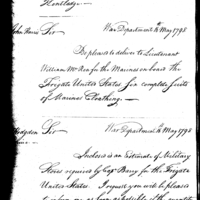 Hentledge
John Harris Sir War Department May 1798
Be pleased to deliver to Lieutenant
William McRea for the Marines on board the
Frigate United States Ten complete suits
of Marines Cloathing.
Hodgdon Sir War Department May 1798
Inclosed is an Estimate of Military
Stores required by Capt Barry for the Frigate
United States. I request you will be pleased
to inform me as soon as possible if the